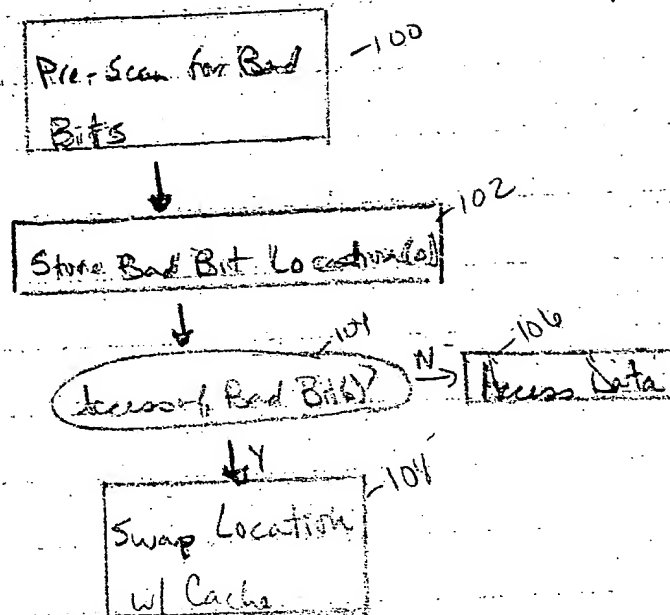 Pre-Scan for Bad
Bits
100
Store Bad Bit Location(s)
102
Access of Bad Bit(s)?
104
N
Access Data
106
Y
Swap Location
w/ Cache